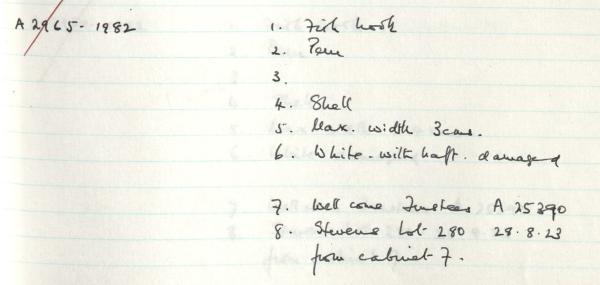 A 2965-1982 1. Fish hook
2. Peru
3.
4. Shell
5. Max. width 3cms.
6. White. with haft. damaged
7. Wellcome Trustees A 25390
8. Stevens Lot 280 28.8.23
from cabinet 7.